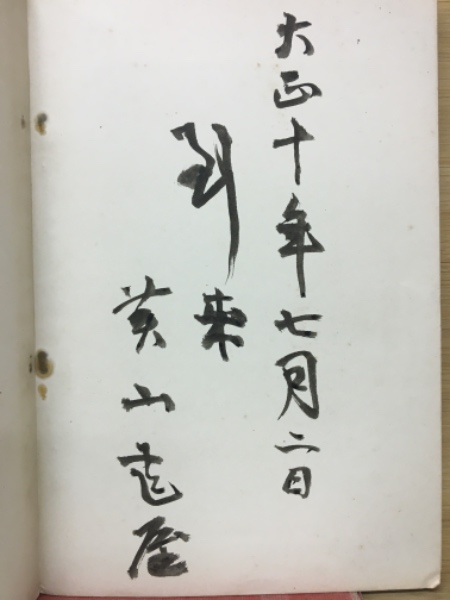 大正十年七月二日
到来
黄山